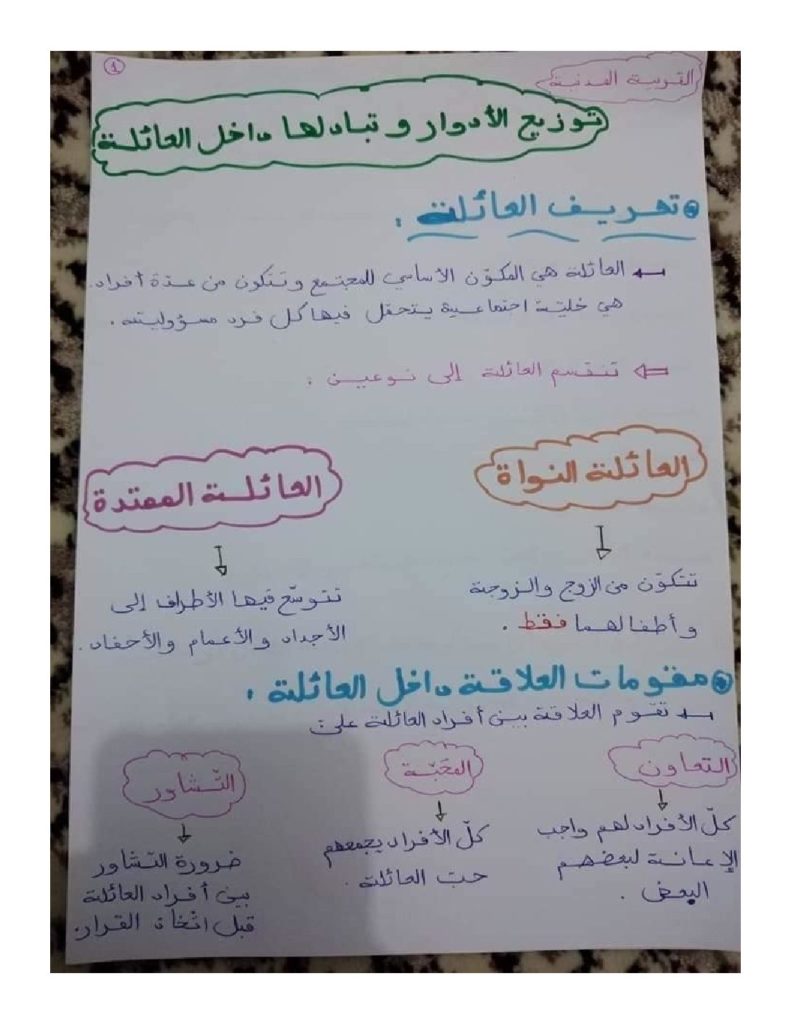 1
التربية المدنية
توزيع الأدوار و تبادلها داخل العائلة
تعريف العائلة :
العائلة هي المكوّن الأساسي للمجتمع وتتكون من عدّة أفراد.
هي خليّة اجتماعية يتحمّل فيها كل فرد مسؤوليته .
تنقسم العائلة إلى نوعين :
العائلة النواة
العائلة الممتدة
تتكوّن من الزوج والزوجة
و أطفالهما فقط .
تتوسّع فيها الأطراف إلى
الأجداد والأعمام والأحفاد .
مقومات العلاقة داخل العائلة :
تقوم العلاقة بين أفراد العائلة على:
التعاون
المحبّة
التّشاور
كلّ الأفراد لهم واجب
الإعانة لبعضهم
البعض .
كلّ الأفراد يجمعهم
حبّ العائلة .
ضرورة التشاور
بين أفراد العائلة
قبل اتّخاذ القرار.